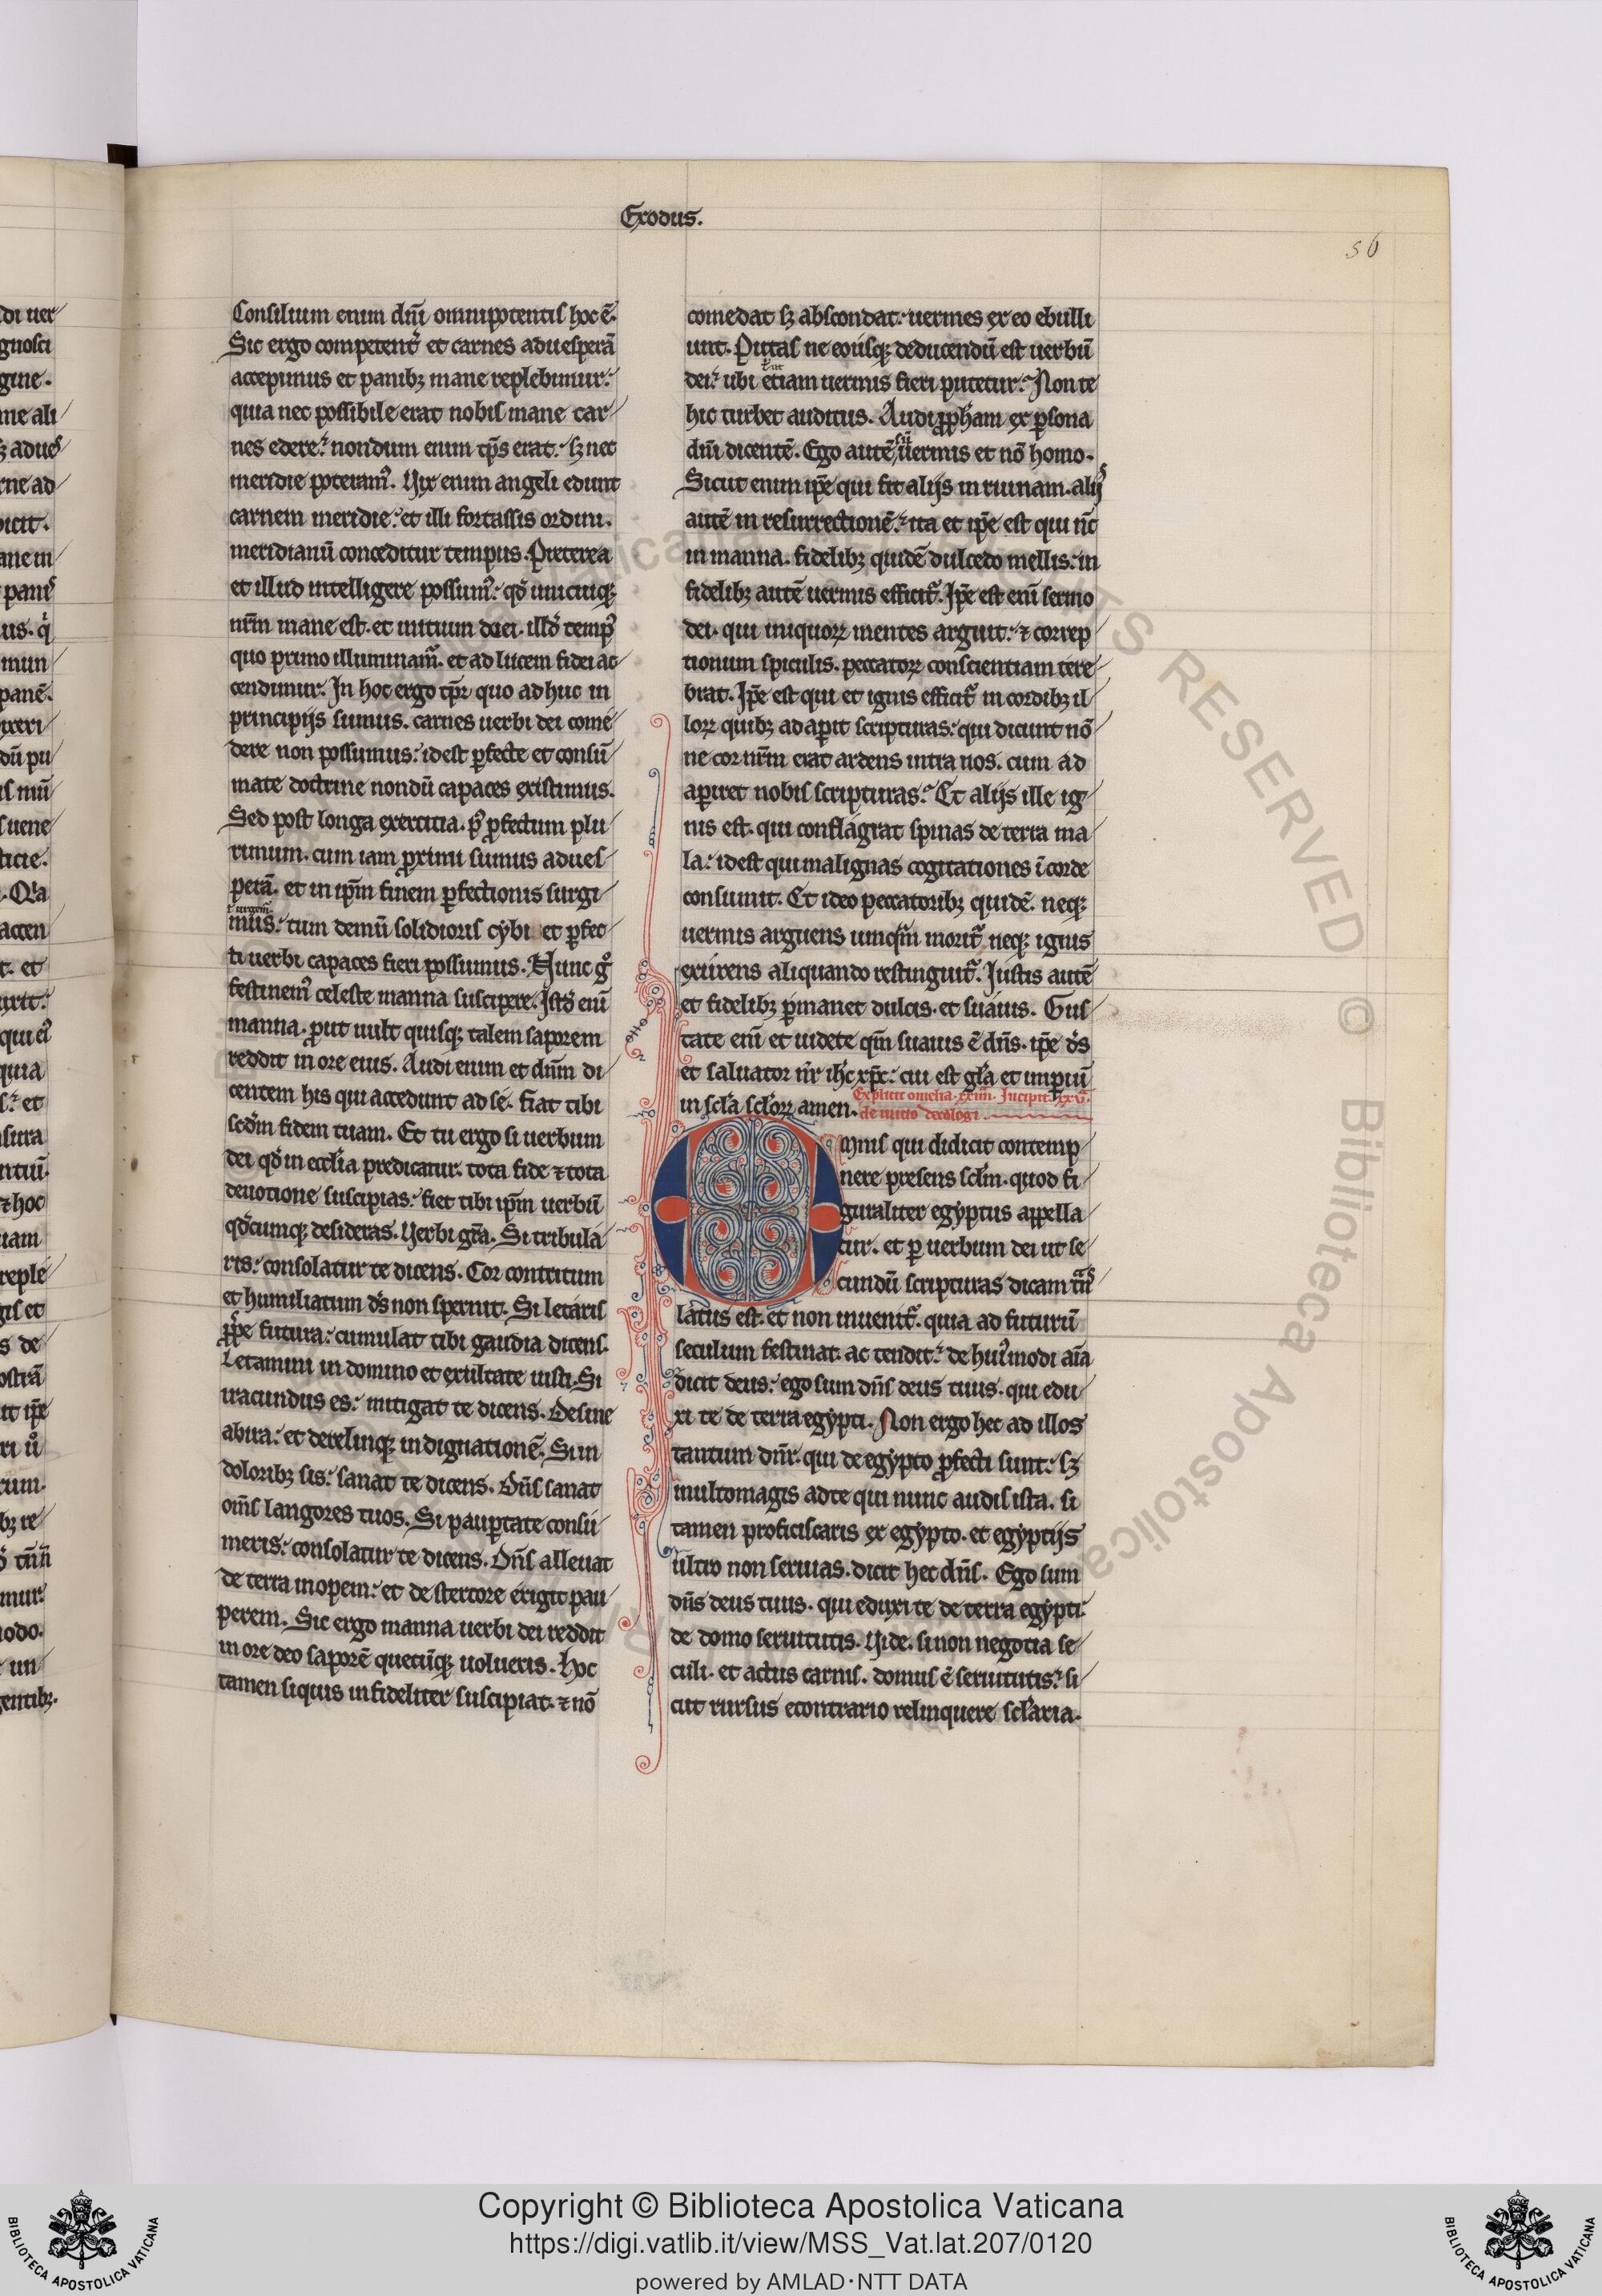 Exodus.
56
Consilium enim dñi omnipotentis hoc ē.
Sic ergo competenť et carnes aduesperā
accepimus et panibꝫ mane replebimur:
quia nec possibile erat nobis mane car
nes edere: nondum enim tp̄s erat: sꝫ nec
meridie poteramꝰ. Vix enim angeli edunt
carnem meridie: et illi fortassis ordini.
meridianū conceditur tempus. Preterea
et illud intelligere possumꝰ: qđ unicuiqꝫ
nr̄m mane est. et initium diei. illđ tempꝰ
quo primo illuminamꝰ. et ad lucem fidei ac
cendimur. In hoc ergo tp̄r quo ad huc in
principijs sumus. carnes uerbi dei come
dere non possumus: idest ꝑfecte et consū
mate doctrine nondū capaces existimus.
Sed post longa exercitia. pꝰ ꝓfectum plu
rimum. cum iam ꝓximi sumus adues
perā. et in ip̄m finem ꝑfectionis surgi
mus: tum demū solidioris cybi et ꝑfec
ti uerbi capaces fieri possumus. Nunc gͦ
festinemꝰ celeste manna suscipere. Istđ eni
manna. ꝓut uult quisqꝫ talem saporem
reddit in ore eius. Audi enim et dn̄m di
centem his qui accedunt ad se. fiat tibi
scđm fidem tuam. Et tu ergo si uerbum
dei qđ in eccl̄ia predicatur. tota fide ⁊ tota
deuotione suscipias: fiet tibi ip̄m uerbū
qđcumqꝫ desideras. Verbi gr̄a. Si tribula
ris: consolatur te dicens. Cor contritum
et humiliatum đs non spernit. Si letaris
ꝓpe futura: cumulat tibi gaudia dicens.
Letamini in domino et exultate iusti. Si
iracundus es: mitigat te dicens. Desine
abira: et derelinqꝫ indignationē. Si in
doloribꝫ sis: sanat te dicens. Dn̄s sanat
om̄s langores tuos. Si pauꝑtate consu
meris: consolatur te dicens. Dn̄s alleuat
de terra inopem: et de stercore erigit pau
perem. Sic ergo manna uerbi dei reddit
in ore deo saporē quecūqꝫ uolueris. Hoc
tamen siquis infideliter suscipiat. ⁊ nō
comedat sꝫ abscondat: uermes ex eo ebulli
unt. Putas ne eousqꝫ deducendū est uerbū
dei: ubi etiam uermis fieri putetur: Non te
hic turbet auditus. Audi ꝓph̄am ex ꝑsona
dn̄i dicentē. Ego autē sū uermis et nō homo.
Sicut enim ip̄e qui fit alijs in ruinam. alijs
autē in resurrectionē: ita et ip̄e est qui n̄c
in manna. fidelibꝫ quidē dulcedo mellis: in
fidelibꝫ autē uermis efficiť. Ip̄e est eni sermo
dei. qui iniquoꝝ mentes arguit: ⁊ correp
tionum spiculis. peccatoꝝ conscientiam tere
brat. Ip̄e est qui et ignis efficiť in cordibꝫ il
loꝝ quibꝫ adaꝑit scripturas: qui dicunt nō
ne cor nr̄m erat ardens intra nos. cum ad
aꝑiret nobis scripturas: Et alijs ille ig
nis est. qui conflagrat spinas de terra ma
la: idest qui malignas cogitationes ī corde
consumit. Et ideo peccatoribꝫ quidē. neqꝫ
uermis arguens umqm̄ moriť neqꝫ ignis
exurens aliquando restinguiť. Iustis autē
et fidelibꝫ ꝑmanet dulcis. et suauis. Gus
tate eni et uidete qm̄ suauis ē dn̄s. ip̄e đs
et saluator nr̄ ih̄c xp̄c: cui est gl̄a et imꝑiū
in scl̄a scl̄oꝝ amen.
Explicit omelia. xiiii. Incipit. xv.
de initio decalogi
Omnis qui didicit contemp
nere presens scl̄m. quod fi
guraliter egyptus appella
tur. et ꝑ uerbum dei ut se
cundū scripturas dicam trās
latus est. et non inueniť. quia ad futurū
seculum festinat. ac tendit: de huiꝰmodi aīa
dicit deus: ego sum dn̄s deus tuus. qui edu
xi te de terra egypti. Non ergo hec ad illos
tantum dn̄r. qui de egypto ꝓfecti sunt: sꝫ
multomagis adte qui nunc audis ista. si
tamen proficiscaris ex egypto. et egyptijs
ultro non seruias. dicit hec dn̄s. Ego sum
dn̄s deus tuus. qui eduxi te de terra egypti.
de domo seruitutis. Vide. si non negotia se
culi. et actus carnis. domus ē seruitutis: si
cut rursus econtrario relinquere scl̄aria.
Copyright © Biblioteca Apostolica Vaticana
https://digi.vatlib.it/view/MSS_Vat.lat.207/0120
powered by AMLAD·NTT DATA
BIBLIOTECA APOSTOLICA VATICANA
BIBLIOTECA APOSTOLICA VATICANA